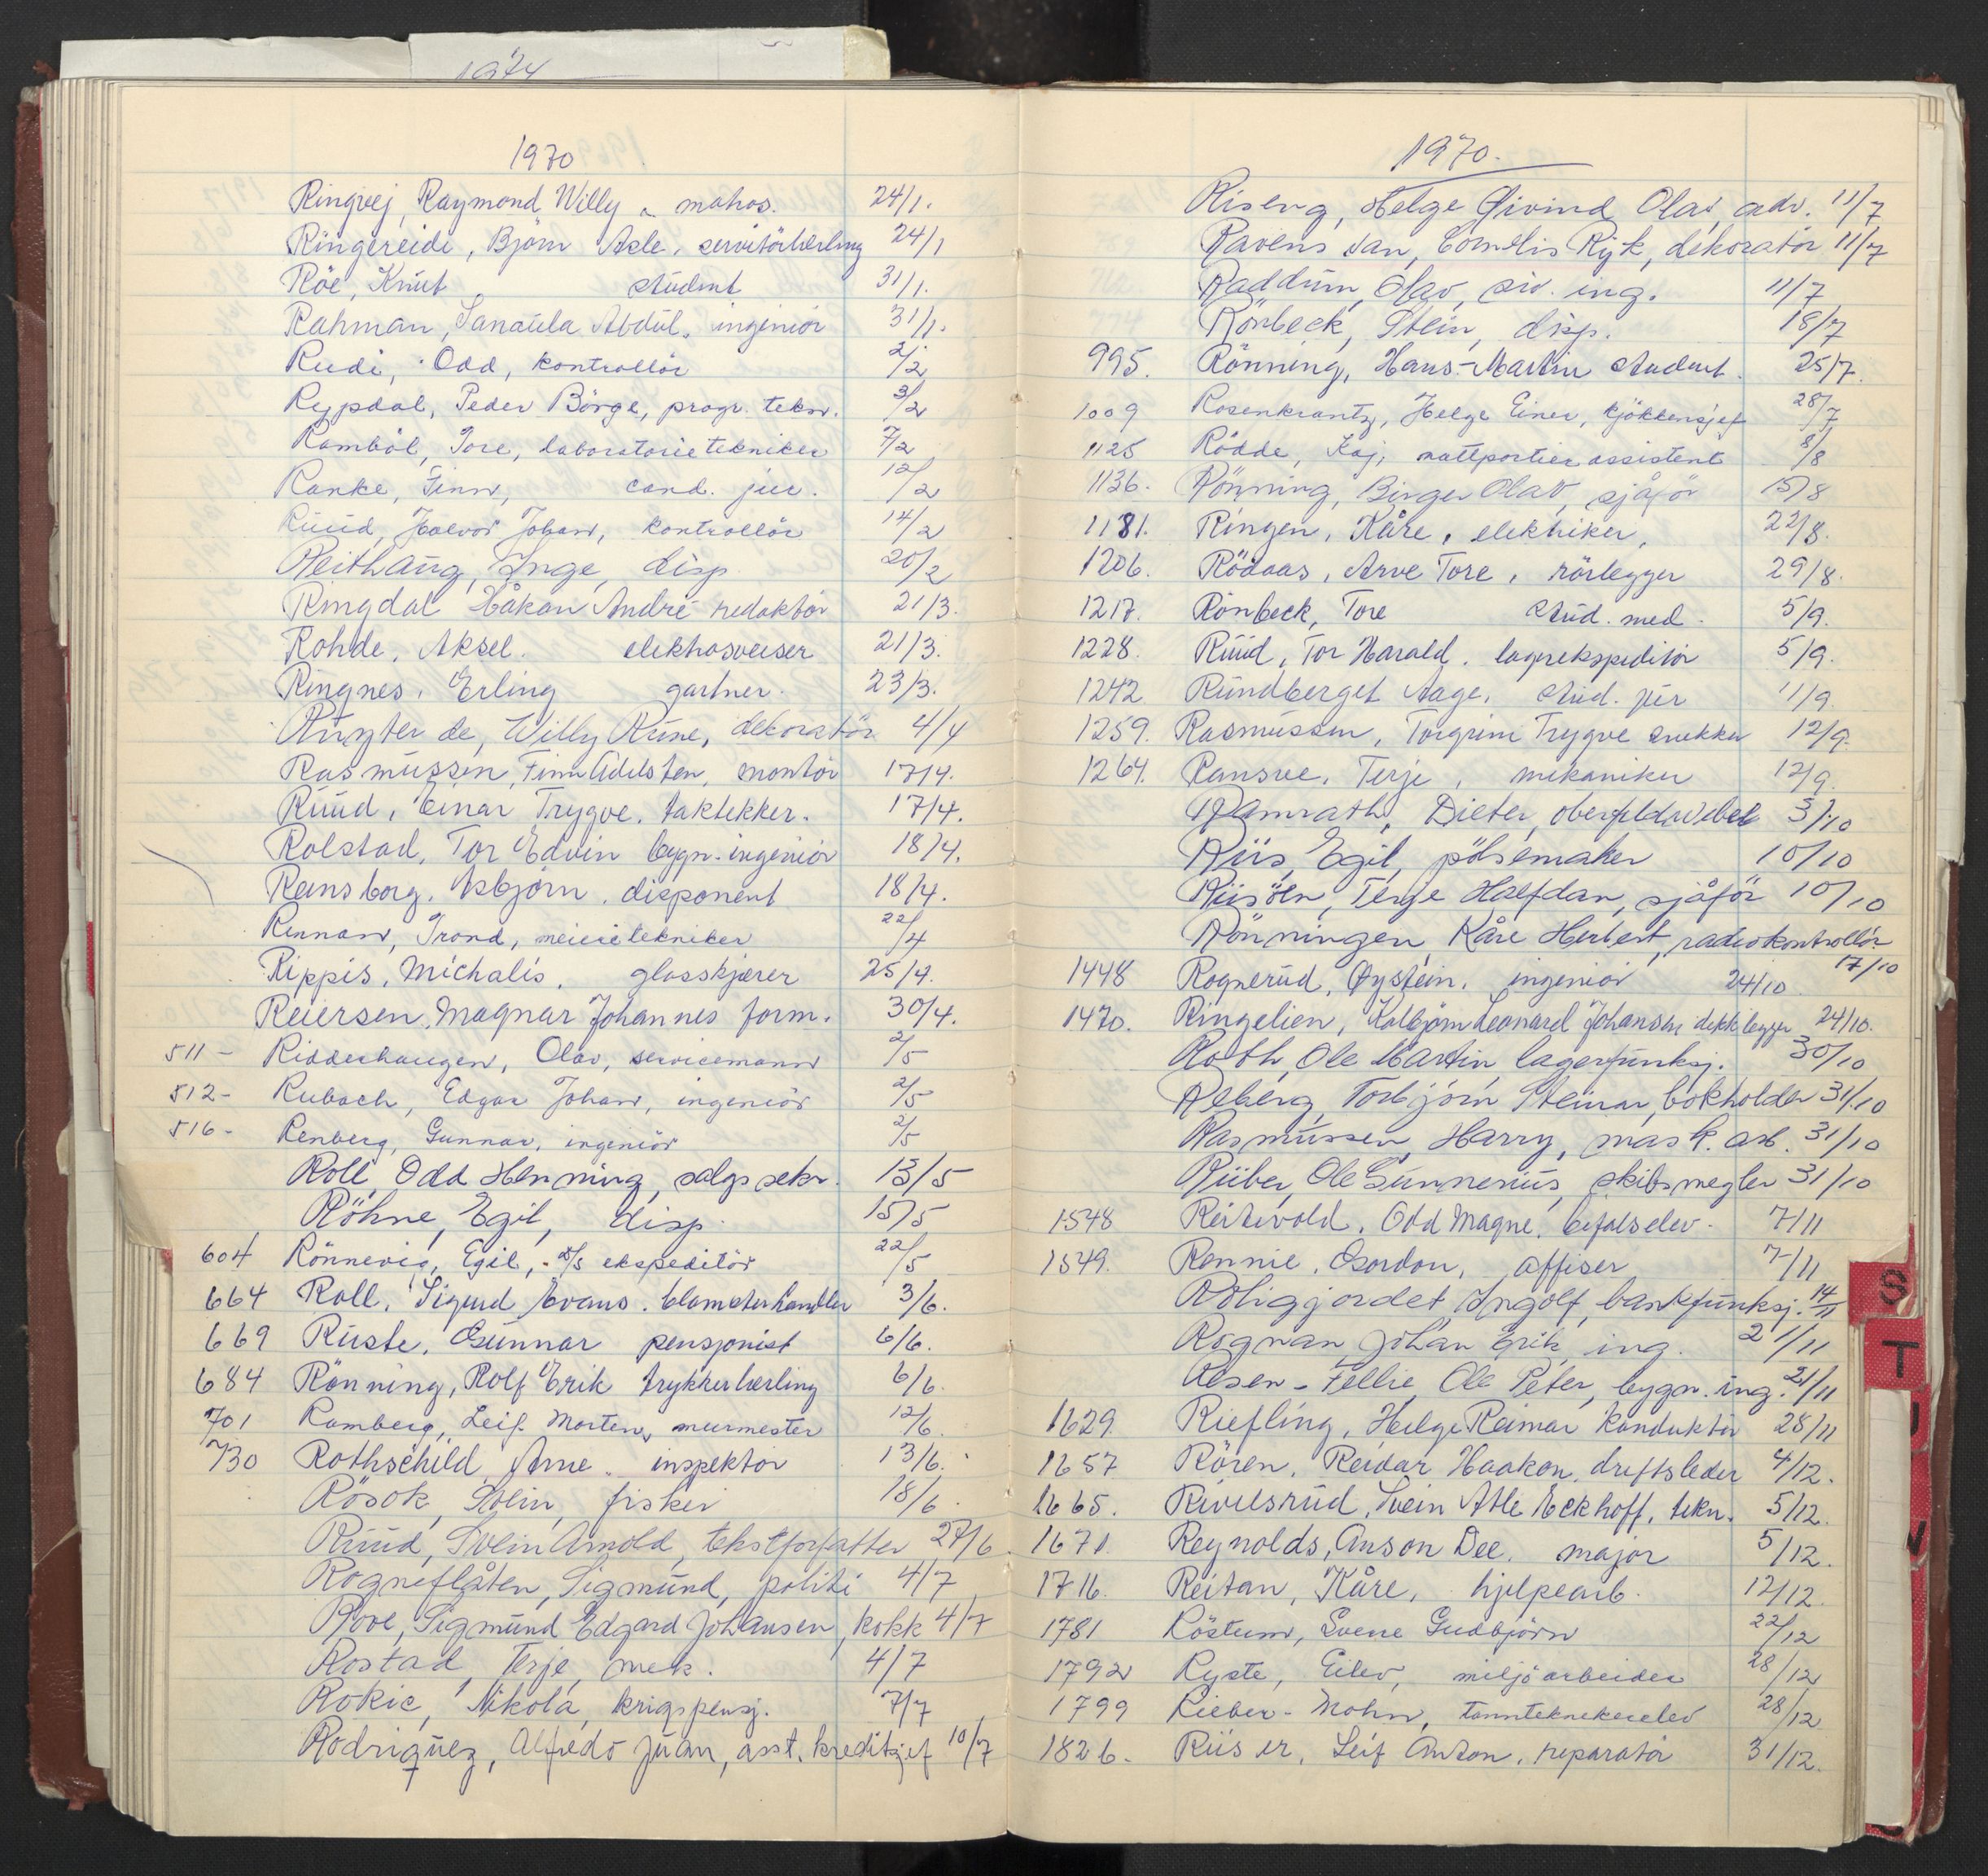 1974
1970
Ringvej, Raymond Willy mahos. 24/1.
Ringereide, Björn Asle, servitörlærling 24/1
Röe, Knut student 31/1.
Rahman, Sanaula Abdul, ingeniör 31/1.
Rudi, Odd, kontrollör 2/2
Rypdal, Peder Börge, progr. tekn. 3/2
Ramböl, Tore, laboratorietekniker 7/2
Ranke, Finn, cand. jur. 12/2
Ruud, Halvor Johan, kontrollör 14/2
Reithaug, Inge, disp 20/2
Ringdal Håkan André redaktör 21/3.
Rohde, Aksel. elektrosveiser 21/3.
Ringnes, Erling gartner. 23/3.
Ruyter de, Willy Rune, dekoratör 4/4
Rasmussen, Finn Adelsten, montör 17/4.
Ruud, Einar Trygve, taktekker. 17/4.
Rolstad, Tor Edvin bygn.-ingeniör 18/4.
Rensborg, Asbjörn, disponent 18/4.
Rennan, Trond, meieritekniker 22/4
Rippis, Michalis, glasskjærer 25/4.
Reiersen, Magnar Johannes form. 30/4.
511 - Ridderhaugen, Olav, servicemann 2/5
512 - Rubach, Edgar Johan, ingeniör 2/5
516 - Renberg, Gunnar, ingeniör 2/5
Roll, Odd Henning, salgssekr. 13/5
Röhne, Egil, disp. 15/5
604 Rönnevig, Egil, d/s ekspeditör 22/5
664 Roll, Sigurd Evans. blomsterhandler 3/6.
669 Ruste, Gunnar pensjonist 6/6.
684 Rönning, Rolf Erik trykkerlærling 6/6.
701 Ramberg, Leif Morten, murmester 12/6.
730 Rothschild, Arne. inspektör 13/6.
Rösok, Svein, fisker 18/6.
Ruud, Svein Arnold, tekstforfatter 27/6.
Rogneflåten, Sigmund, politi 4/7
Rove, Sigmund Edgard Johansen, kokk 4/7
Rostad, Terje, mek. 4/7
Rokic, Nikola, krigspensj. 7/7
Rodriquez, Alfredo Juan, asst. kreditsjef 10/7
1970.
Riseng, Helge Øivind Olav, adv. 11/7
Ravens van, Cornelis Rijk, dekoratör 11/7
Raddum, Olav, siv. ing. 11/7
Rönbeck, Stein, disp. 18/7
995. Rönning, Hans-Martin student. 25/7.
1009 Rosenkrantz, Helge Einer, kjökkensjef 28/7
1125 Rödde, Kaj, nattportierassistent 8/8
1136. Rönning, Birger Olav, sjåför 15/8
1181. Ringen, Kåre, elektriker, 22/8.
1206. Rödaas, Arve Tore, rörlegger 29/8.
1217. Rönbeck, Tore stud. med. 5/9.
1228. Ruud, Tor Harald. lagerekspeditör 5/9.
1242 Rundberget Aage, stud. jur 11/9.
1259. Rasmussen, Torgrim Trygve snekker 12/9.
1264. Ransve, Terje, mekaniker 12/9.
Ramrath, Dieter, oberfeldwebel 3/10
Riis, Egil, pölsemaker 10/10
Riisöen, Terje Halfdan, sjåför 10/10
Rönningen, Kåre Herbert, radiokontrollör
17/10
1448 Rognerud, Øystein, ingeniör 24/10
1470. Ringelien, Kolbjörn Leonard Johansen dekklegger 24/10.
Roth, Ole Martin lagerfunksj. 30/10
Reberg, Torbjörn Steinar, bokholder 31/10
Rasmussen, Harry, mask. arb. 31/10
Rüber, Ole Gunnerius, skibsmegler 31/10
1548 Reitevold, Odd Magne, befalselev. 7/11
1549. Rennie, Gordon, offiser 7/11
Roligjordet, Ingolf, bankfunksj. 14/11
Rognan, Johan Erik, ing. 21/11
Resen-Fellie, Ole Peter, bygn. ing. 21/11
1629. Riefling, Helge Reimar konduktör 28/11
1657 Rören, Reidar Haakon, driftsleder 4/12.
1665. Rivelsrud, Svein Atle Eckhoff, tekn. 5/12.
1671. Reynolds, Anson Dee, major 5/12.
1716. Reitan, Kåre, hjelpearb. 12/12.
1781 Röstum, Svene Gudbjörn 22/12
1792 Ryste, Eilev, miljöarbeider 28/12
1799 Rieber-Mohn, tannteknekerelev 28/12
1826. Riiser, Leif Anton, reparatör 31/12.
S
T